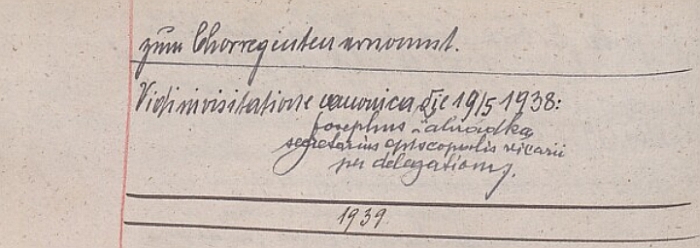 zum Chorregenten ernannt.
Vidi in visitatione canonica die 19/5 1938:
Josephus Zahradka
secretarius episcopalis vicarii
per delegationem.
1939